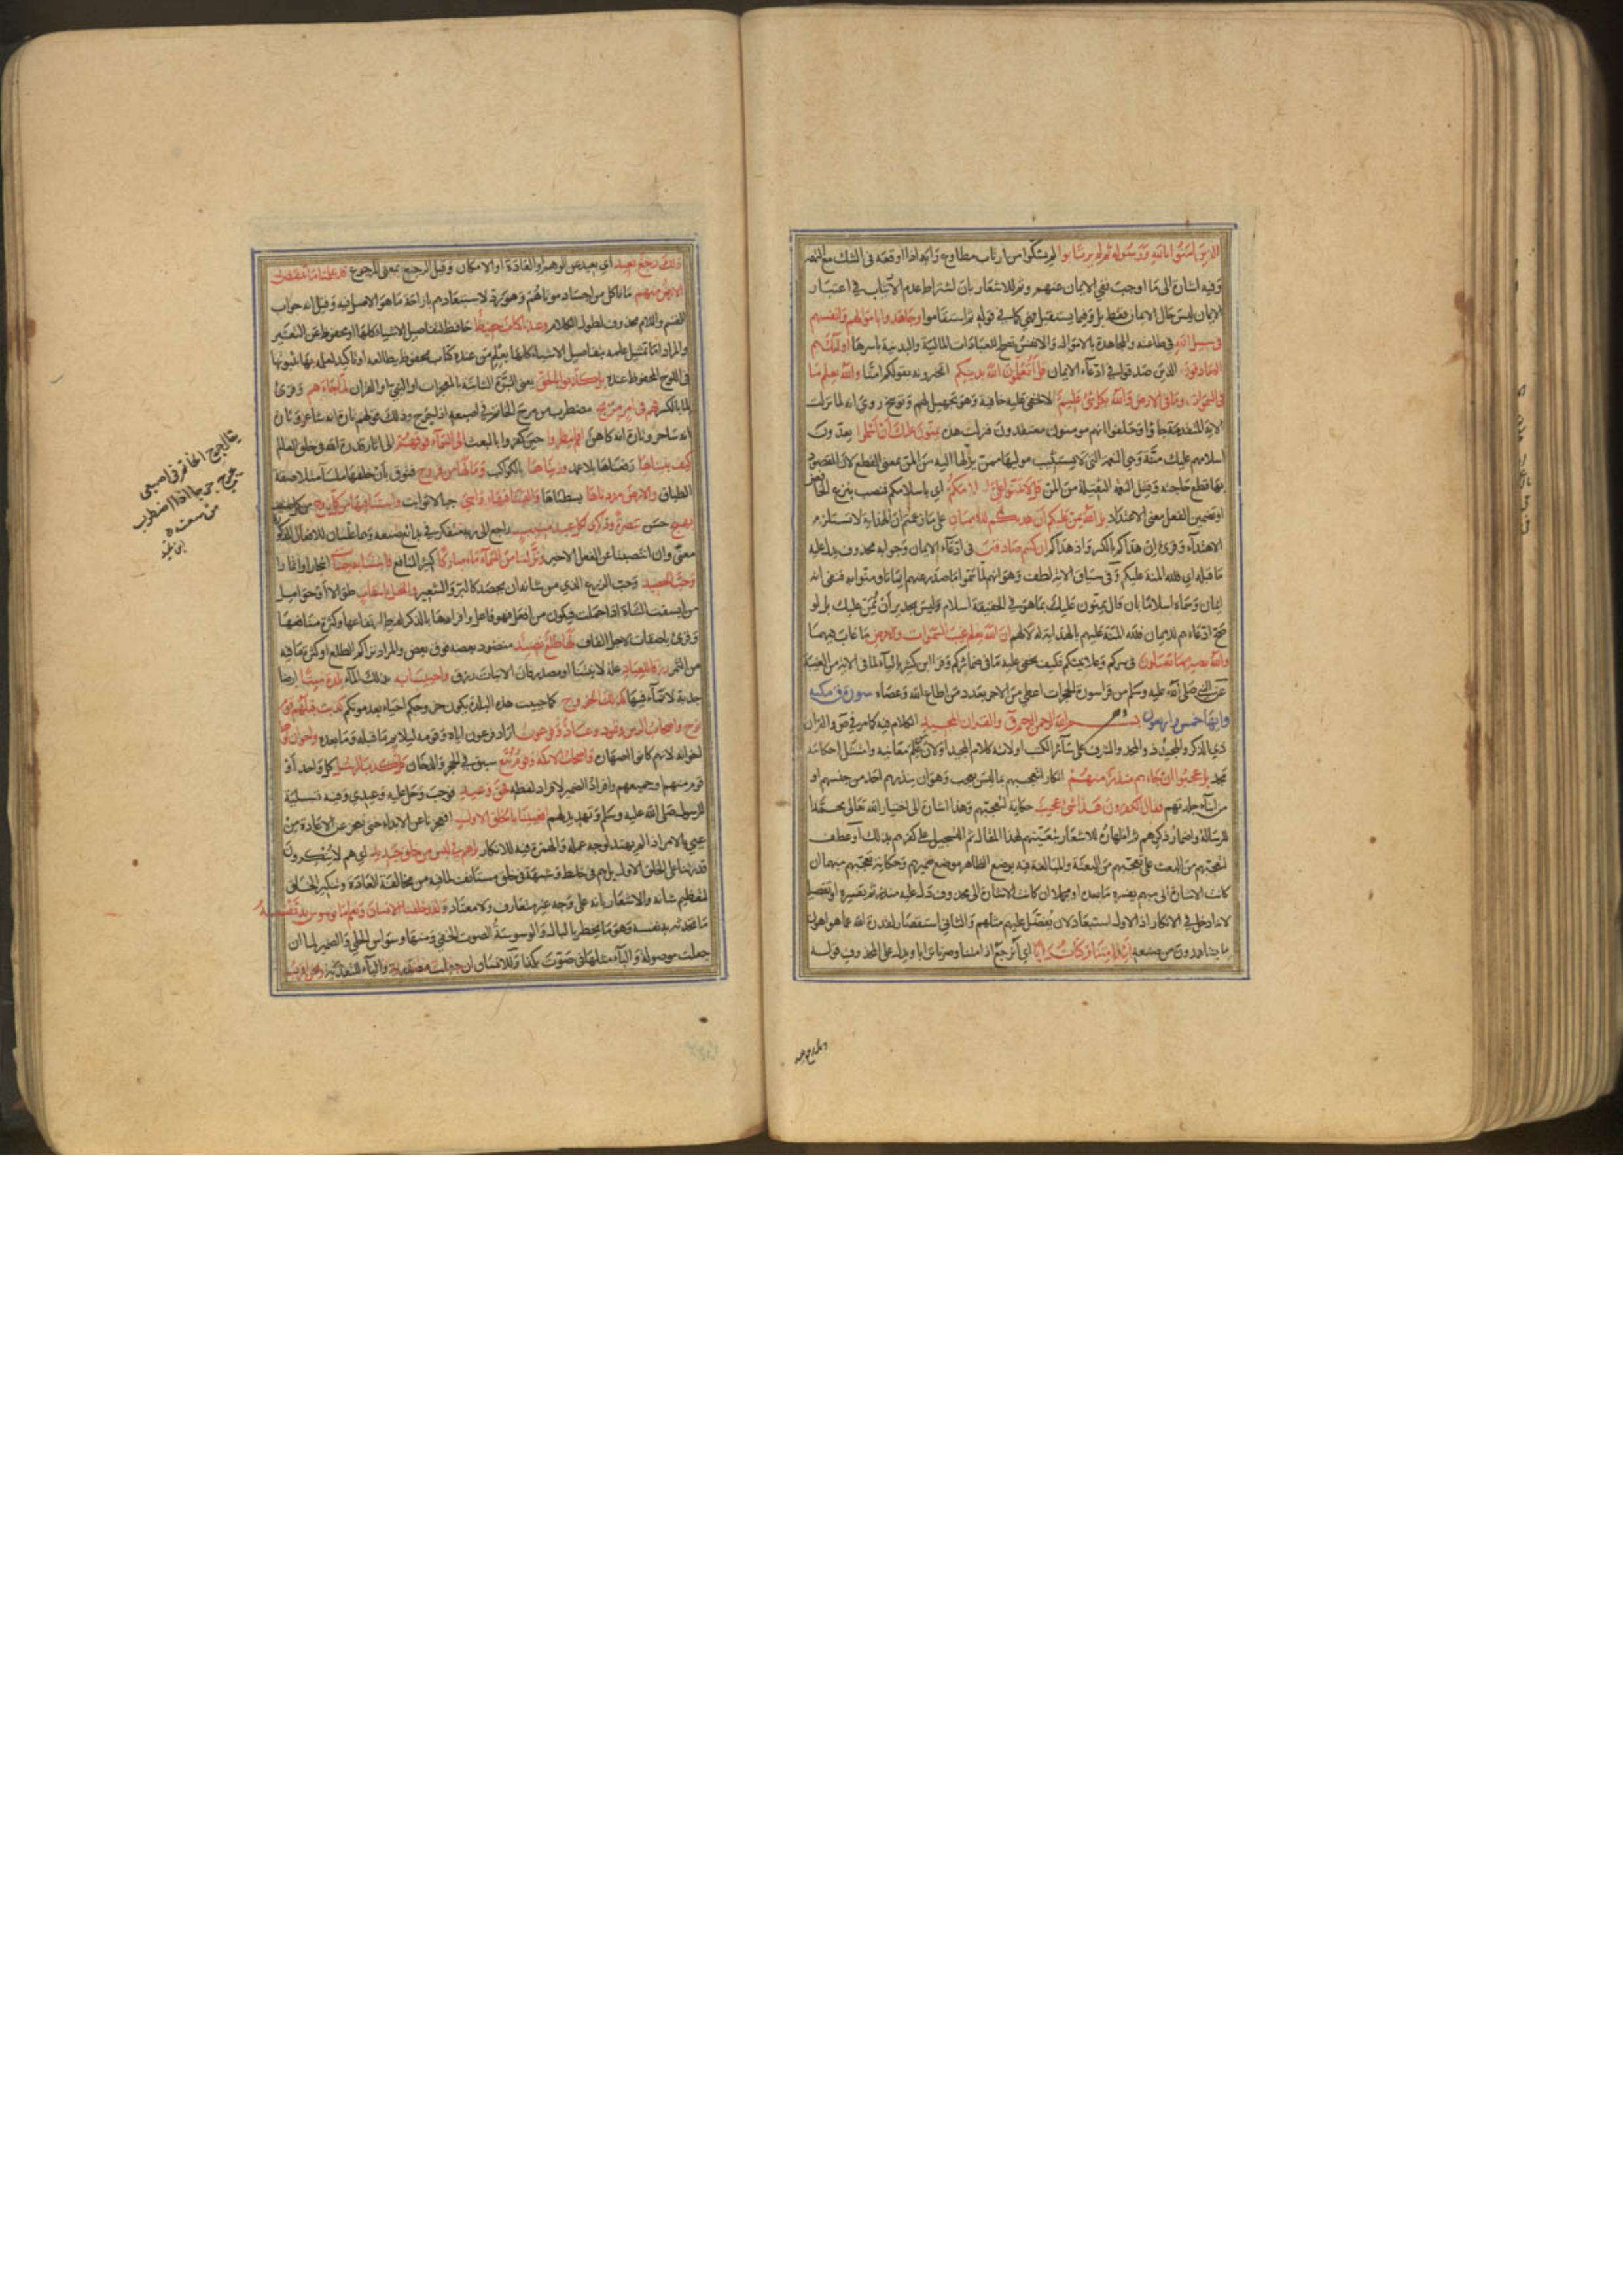 الذين امنوا بالله ورسوله ثم لم يرتابوا لم يشكوا من ارتاب مطاوع رابه اذا اوقعه فى الشك مع التهمة
وفيه اشارة الى ما اوجب نفى الايمان عنهم وثم للاشعار بان اشتراط عدم الارتياب فى اعتبار
الايمان ليس حال الايمان فقط بل وفيما يستقبل فهى كما فى قوله ثم استقاموا وجاهدوا باموالهم وانفسهم
فى سبيل الله فى طاعته والمجاهدة بالاموال والانفس تصلح للعبادات المالية والبدنية باسرها اولئك هم
الصادقون الذين صدقوا فى ادعاء الايمان قل اتعلمون الله بدينكم اتخبرونه به بقولكم امنا والله يعلم ما
فى السموات وما فى الارض والله بكل شئ عليم لا تخفى عليه خافية وهو تجهيل لهم وتوبيخ روى انه لما نزلت
الاية المتقدمة جاؤا وحلفوا انهم مومنون معتقدون فنزلت هذه يمنون عليك ان اسلموا يعدون
اسلامهم عليك منة وهى النعمة التى لا يستثيب موليها ممن يزلها اليه من المن بمعنى القطع لان المقصود
بها قطع حاجته وقيل النعمة الثقيلة من المن قل لا تمنوا على اسلامكم اى باسلامكم فنصب بنزع الخافض
او تضمين الفعل معنى الاعتداد بل الله يمن عليكم ان هديكم للايمان على ما زعمتم ان الهداية لا تستلزم
الاهتداء وقرئ ان هداكم بالكسر واذ هداكم ان كنتم صادقين فى ادعاء الايمان وجوابه محذوف يدل عليه
ما قبله اى فلله المنة عليكم وفى سياق الاية لطف وهو انهم لما سموا ما صدر عنهم ايمانا ومنوا به فنفى انه
ايمان وسماه اسلاما بان قال يمنون عليك بما هو فى الحقيقة اسلام وليس بجدير ان يمن عليك بل لو
صح ادعاءهم للايمان فلله المنة عليهم بالهداية له لا لهم ان الله يعلم غيب السموات والارض ما غاب فيهما
والله بصير بما تعملون فى سركم وعلانيتكم فكيف يخفى عليه ما فى ضمائركم وقرا ابن كثير بالياء لما فى الاية من الغيبة
عن النبى صلى الله عليه وسلم من قرا سورة الحجرات اعطى من الاجر بعدد من اطاع الله وعصاه سورة ق مكية
وايها خمس واربعون بسم الله الرحمن الرحيم ق والقران المجيد الكلام فيه كما مر فى ص والقران
ذى الذكر والمجيد ذو المجد والشرف على سائر الكتب او لانه كلام المجيد او لان من علم معانيه وامتثل احكامه
مجد بل عجبوا ان جاءهم منذر منهم انكار لتعجبهم مما ليس بعجب وهو ان ينذرهم احد من جنسهم او
من ابناء جلدتهم فقال الكافرون هذا شئ عجيب حكاية لتعجبهم وهذا اشارة الى اختيار الله تعالى محمدا
للرسالة واضمار ذكرهم ثم اظهاره للاشعار بتعنتهم لهذا المقال ثم التسجيل على كفرهم بذلك او عطف
لتعجبهم من البعث على تعجبهم من البعثة والمبالغة فيه بوضع الظاهر موضع ضميرهم وحكاية تعجبهم مبهما ان
كانت الاشارة الى مبهم يفسره ما بعده او مجملا ان كانت الاشارة الى محذوف دل عليه منذر ثم تفسيره او تفصيله
لانه ادخل فى الانكار اذ الاول استبعاد لان يفضل عليهم مثلهم والثانى استقصار لقدرة الله عما هو اهون
ما يشاهدون من صنعه ائذا متنا وكنا ترابا اى انرجع اذا متنا وصرنا ترابا ويدل على المحذوف قوله
ذلك رجع بعيد اى بعيد عن الوهم او العادة او الامكان وقيل الرجع بمعنى المرجوع قد علمنا ما تنقص
الارض منهم ما تاكل من اجساد موتاهم وهو رد لاستبعادهم بازاحة ما هو الاصل فيه وقيل انه جواب
القسم واللام محذوف لطول الكلام وعندنا كتاب حفيظ حافظ لتفاصيل الاشياء كلها او محفوظ عن التغيير
والمراد اما تمثيل علمه بتفاصيل الاشياء كلها بعلم من عنده كتاب محفوظ يطالعه او تاكيد لعلمه بها بثبوتها
فى اللوح المحفوظ عنده بل كذبوا بالحق يعنى النبوة الثابتة بالمعجزات او النبى او القران لما جاءهم وقرئ
لما بالكسر فهم فى امر مريج مضطرب من مرج الخاتم فى اصبعه اذا جرج وذلك قولهم تارة انه شاعر وتارة
انه ساحر وتارة انه كاهن افلم ينظروا حين كفروا بالبعث الى السماء فوقهم الى اثار قدرة الله فى خلق العالم
كيف بنيناها رفعناها بلا عمد وزيناها بالكواكب وما لها من فروج فتوق بان خلقها ملساء متلاصقة
الطباق والارض مددناها بسطناها والقينا فيها رواسى جبالا ثوابت وانبتنا فيها من كل زوج من كل صنف
بهيج حسن تبصرة وذكرى لكل عبد منيب راجع الى ربه متفكر فى بدائع صنعه وهما علتان للافعال المذكورة
معنى وان انتصبتا عن الفعل الاخير ونزلنا من السماء ماء مباركا كثير المنافع فانبتنا به جنات اشجارا واثمارا
وحب الحصيد وحب الزرع الذى من شانه ان يحصد كالبر والشعير والنخل باسقات طوالا او حوامل
من ابسقت الشاة اذا حملت فيكون من افعل فهو فاعل وافرادها بالذكر لفرط ارتفاعها وكثرة منافعها
وقرئ باصقات لاجل القاف لها طلع نضيد منضود بعضه فوق بعض والمراد تراكم الطلع او كثرة ما فيه
من الثمر رزقا للعباد علة لانبتنا او مصدر فان الانبات رزق واحيينا به بذلك الماء بلدة ميتا ارضا
جدبة لا نماء فيها كذلك الخروج كما حييت هذه البلدة يكون خروجكم احياء بعد موتكم كذبت قبلهم قوم
نوح واصحاب الرس وثمود وعاد وفرعون اراد فرعون اياه وقومه ليلائم ما قبله وما بعده واخوان لوط
اخوانه لانهم كانوا اصهاره واصحاب الايكة وقوم تبع سبق فى الحجر والدخان كل كذب الرسل كل واحد او
قوم منهم او جميعهم وافراد الضمير لافراد لفظه فحق وعيد فوجب وحل عليه وعيدى وفيه تسلية
للرسول صلى الله عليه وسلم وتهديد لهم افعيينا بالخلق الاول افعجزنا عن الابداء حتى نعجز عن الاعادة من
عيى بالامر اذا لم يهتد لوجه عمله والهمزة فيه للانكار بل هم فى لبس من خلق جديد اى هم لا ينكرون
قدرتنا على الخلق الاول بل هم فى خلط وشبهة فى خلق مستانف لما فيه من مخالفة العادة وتنكير الخلق
لتعظيم شانه والاشعار بانه على وجه غير متعارف ولا معتاد ولقد خلقنا الانسان ونعلم ما توسوس به نفسه
ما تحدث به نفسه وهو ما يخطر بالبال والوسوسة الصوت الخفى ومنها وسواس الحلى والضمير لما ان
جعلت موصولة والباء مثلها فى صوت بكذا وللانسان ان جعلت مصدرية والباء للتعدية ونحن اقرب
يقال جرج الخاتم فى اصبعى
يجرج جرجا اذا اضطرب
من سعته